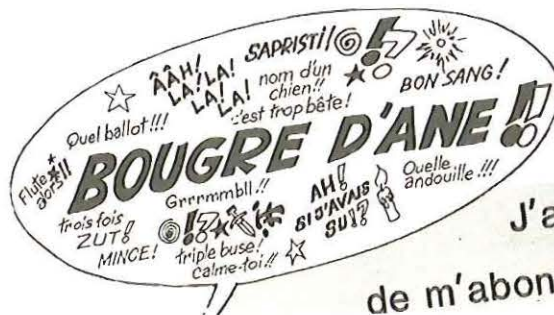 ÂÂH!
LA! LA!
LA!
LA!
SAPRISTI!
nom d'un
chien!!
c'est trop bête!
BON SANG!
Quel ballot!!!
BOUGRE D'ANE!!
Flute
alors!!
Grrrmmbll!!
AH!
SI J'AVAIS
SU!?
Quelle
andouille!!!
trois fois
ZUT!
MINCE!
triple buse!
calme-toi!!
J'a
de m'abon